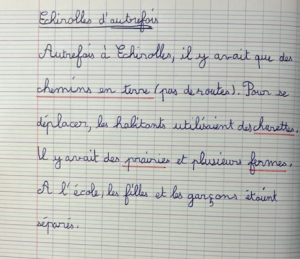 Echirolles d'autrefois
Autrefois à Echirolles, il y avait que des
chemins en terre (pas de routes). Pour se
déplacer, les habitants utilisaient des charettes.
Il y avait des prairies et plusieurs fermes.
A l'école, les filles et les garçons étaient
séparés.